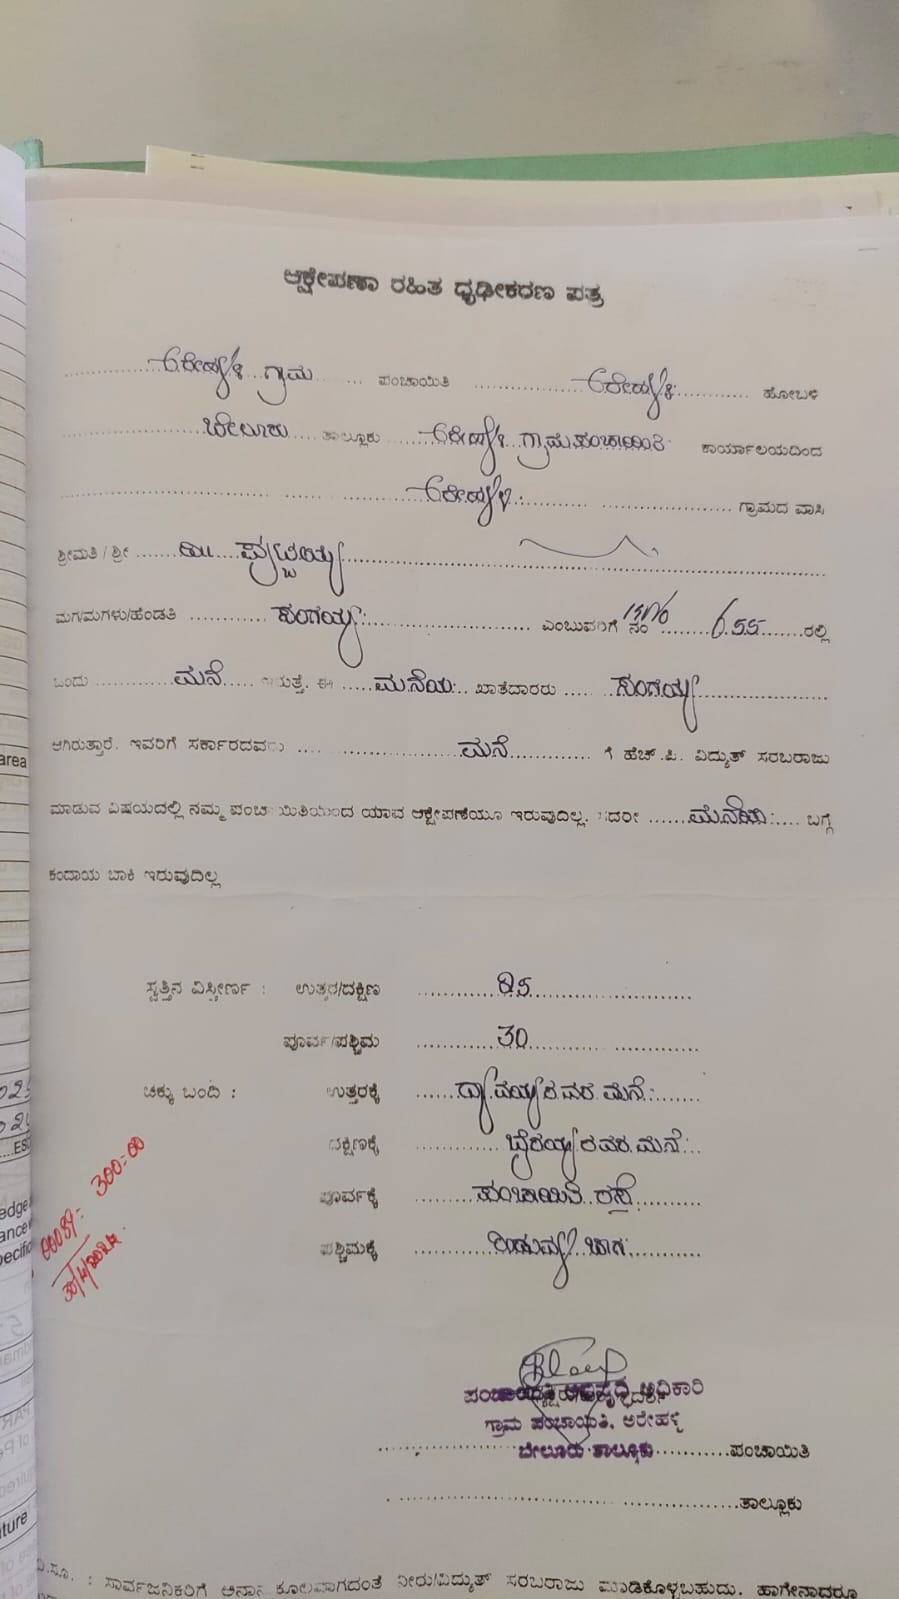 ಆಕ್ಷೇಪಣಾ ರಹಿತ ಧೃಢೀಕರಣ ಪತ್ರ
ಅರೇಹಳ್ಳಿ ಗ್ರಾಮ ಪಂಚಾಯಿತಿ ಅರೇಹಳ್ಳಿ ಹೋಬಳಿ
ಬೇಲೂರು ತಾಲ್ಲೂಕು ಅರೇಹಳ್ಳಿ ಗ್ರಾಮಪಂಚಾಯಿತಿ ಕಾರ್ಯಾಲಯದಿಂದ
ಅರೇಹಳ್ಳಿ ಗ್ರಾಮದ ವಾಸಿ
ಶ್ರೀಮತಿ / ಶ್ರೀ ಪುಟ್ಟಯ್ಯ
ಮಗ/ಮಗಳು/ಹೆಂಡತಿ ಎಂಬುವರಿಗೆ ನಂ 655 ರಲ್ಲಿ
ಒಂದು ಮನೆ ಇರುತ್ತೆ. ಈ ಮನೆಯ ಖಾತೆದಾರರು
ಆಗಿರುತ್ತಾರೆ. ಇವರಿಗೆ ಸರ್ಕಾರದವರು ಮನೆ ಗೆ ಹೆಚ್.ಪಿ. ವಿದ್ಯುತ್ ಸರಬರಾಜು
ಮಾಡುವ ವಿಷಯದಲ್ಲಿ ನಮ್ಮ ಪಂಚಾಯಿತಿಯಿಂದ ಯಾವ ಆಕ್ಷೇಪಣೆಯೂ ಇರುವುದಿಲ್ಲ. ಸದರೀ ಮನೆಯ ಬಗ್ಗೆ
ಕಂದಾಯ ಬಾಕಿ ಇರುವುದಿಲ್ಲ
ಸ್ವತ್ತಿನ ವಿಸ್ತೀರ್ಣ : ಉತ್ತರ/ದಕ್ಷಿಣ
ಪೂರ್ವ/ಪಶ್ಚಿಮ 30
ಚಕ್ಕು ಬಂದಿ : ಉತ್ತರಕ್ಕೆ ದ್ಯಾವಯ್ಯರವರ ಮನೆ
ದಕ್ಷಿಣಕ್ಕೆ ಬೈರಯ್ಯರವರ ಮನೆ
ಪೂರ್ವಕ್ಕೆ ಪಂಚಾಯಿತಿ ರಸ್ತೆ
ಪಶ್ಚಿಮಕ್ಕೆ
300=00
30/4/2024
ಪಂಚಾಯಿತಿ ಅಭಿವೃದ್ಧಿ ಅಧಿಕಾರಿ
ಗ್ರಾಮ ಪಂಚಾಯಿತಿ, ಅರೇಹಳ್ಳಿ
ಬೇಲೂರು ತಾಲ್ಲೂಕು ಪಂಚಾಯಿತಿ
ತಾಲ್ಲೂಕು
ವಿ.ಸೂ. : ಸಾರ್ವಜನಿಕರಿಗೆ ಅನಾನುಕೂಲವಾಗದಂತೆ ನೀರು/ವಿದ್ಯುತ್ ಸರಬರಾಜು ಮಾಡಿಕೊಳ್ಳಬಹುದು. ಹಾಗೇನಾದರೂ